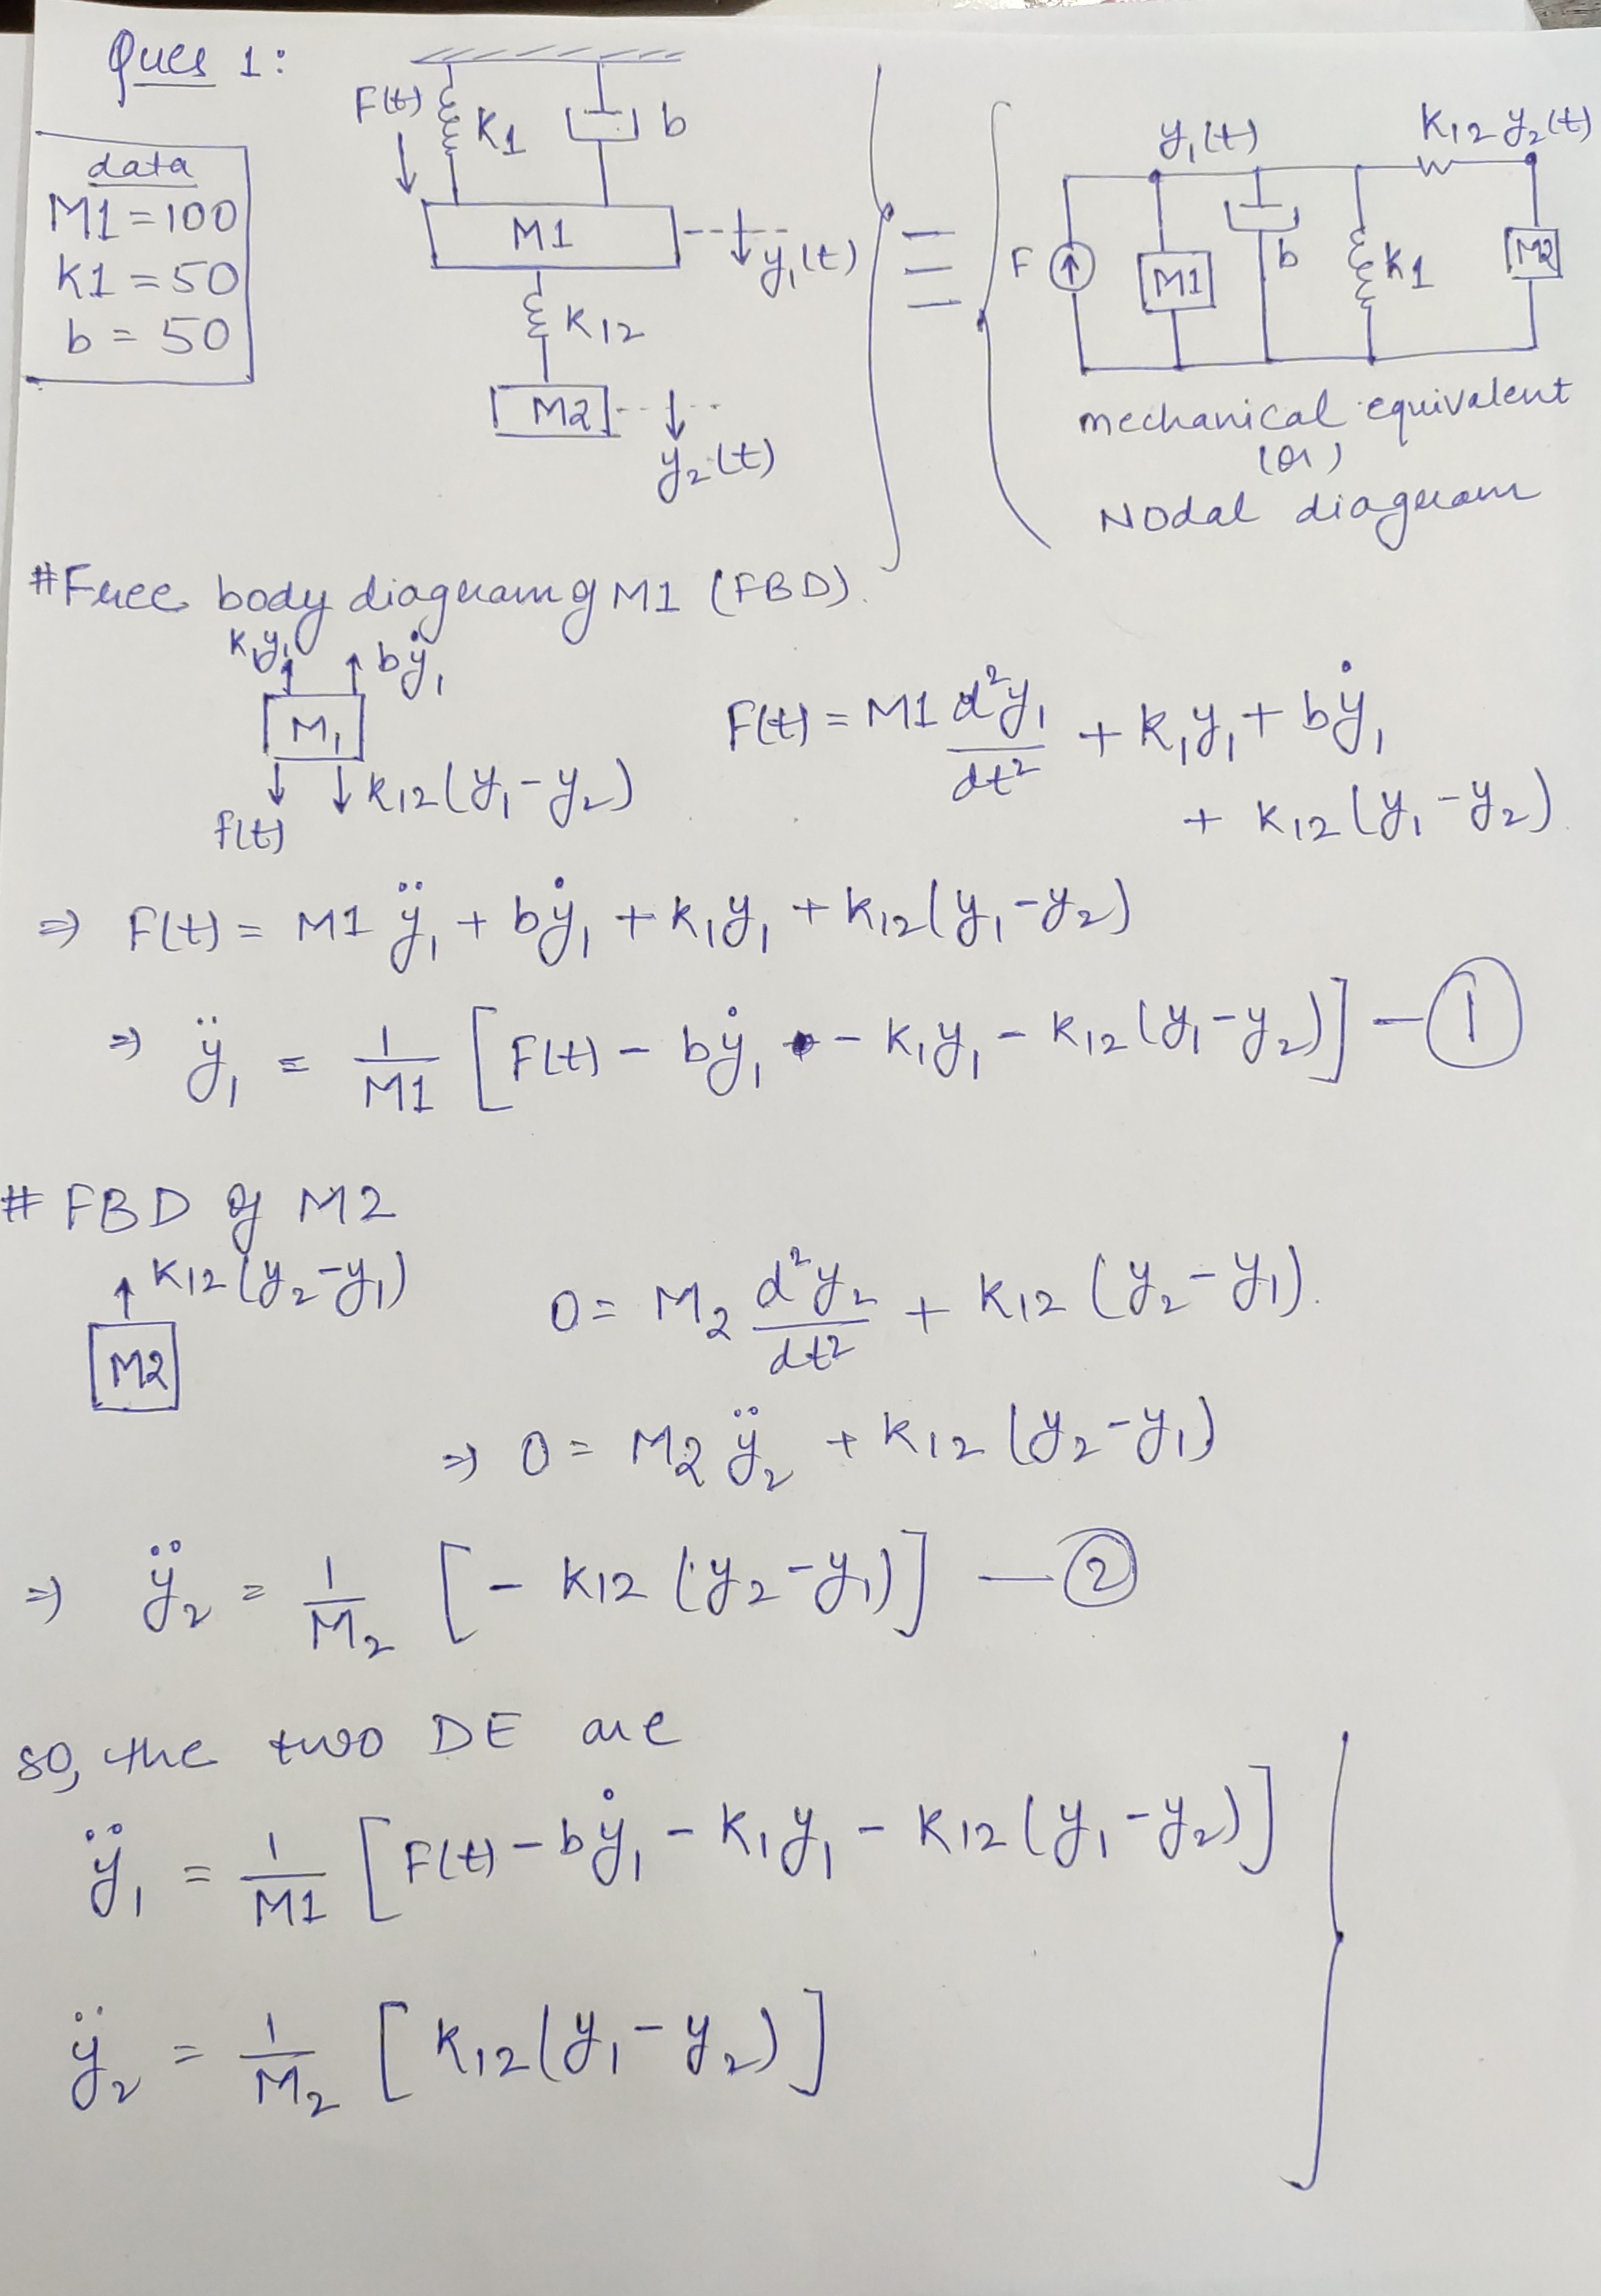 Ques 1:
data
M1=100
K1=50
b=50
F(t)
K1
b
M1
y₁(t)
K12
M2
y₂(t)
y₁(t)
K12 y₂(t)
F
M1
b
K1
M2
mechanical equivalent
(or)
Nodal diagram
#Free body diagram of M1 (FBD).
K₁y₁
bẏ₁
M₁
f(t)
K12(y₁-y₂)
F(t) = M1 d²y₁/dt² + K₁y₁ + bẏ₁
+ K12(y₁-y₂)
⇒ F(t) = M1 ÿ₁ + bẏ₁ + K₁y₁ + K12(y₁-y₂)
⇒ ÿ₁ = 1/M1 [F(t) - bẏ₁ - K₁y₁ - K12(y₁-y₂)] — ①
# FBD of M2
K12(y₂-y₁)
M2
0 = M₂ d²y₂/dt² + K12(y₂-y₁).
⇒ 0 = M₂ ÿ₂ + K12(y₂-y₁)
⇒ ÿ₂ = 1/M₂ [- K12(y₂-y₁)] — ②
so, the two DE are
ÿ₁ = 1/M1 [F(t) - bẏ₁ - K₁y₁ - K12(y₁-y₂)]
ÿ₂ = 1/M₂ [K12(y₁-y₂)]